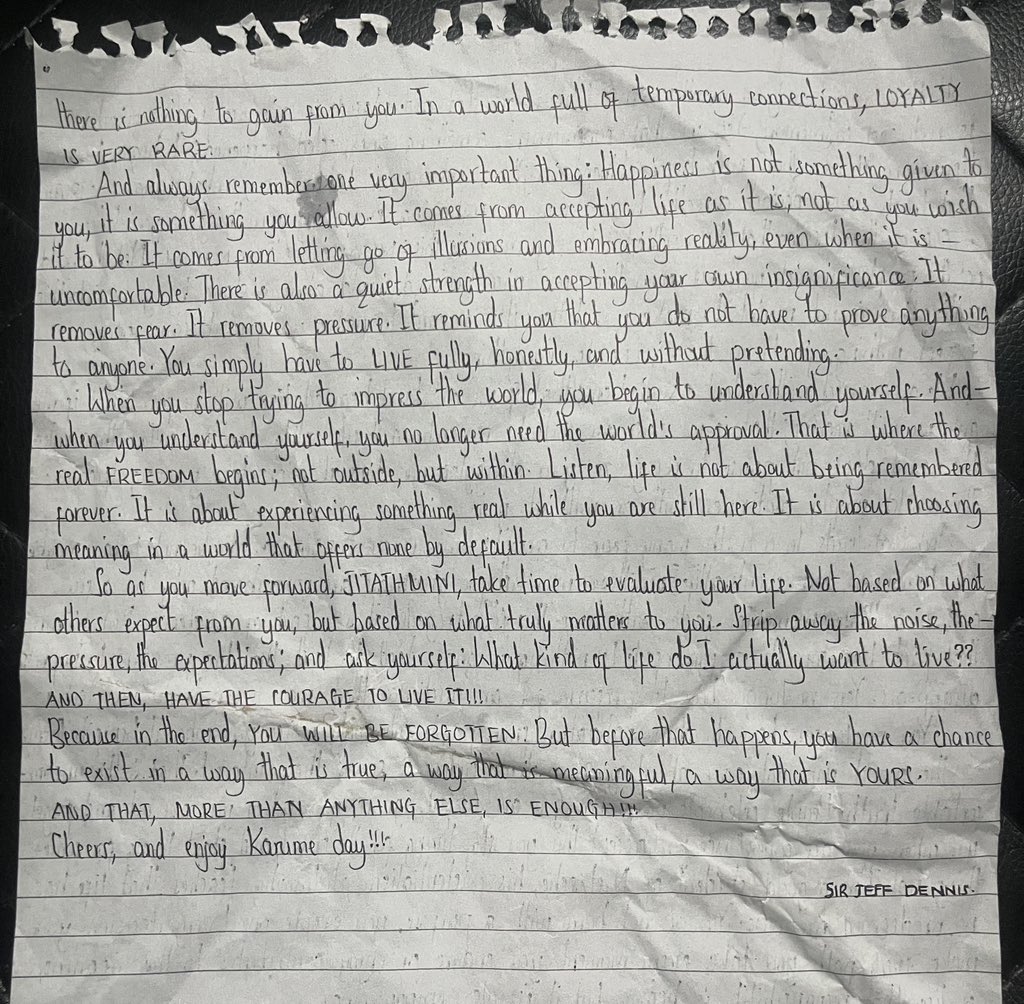 there is nothing to gain from you. In a world full of temporary connections, LOYALTY
IS VERY RARE.
And always remember one very important thing: Happiness is not something given to
you, it is something you allow. It comes from accepting life as it is, not as you wish
it to be. It comes from letting go of illusions and embracing reality, even when it is -
uncomfortable. There is also a quiet strength in accepting your own insignificance. It
removes fear. It removes pressure. It reminds you that you do not have to prove anything
to anyone. You simply have to LIVE fully, honestly, and without pretending.
When you stop trying to impress the world, you begin to understand yourself. And-
when you understand yourself, you no longer need the world's approval. That is where the
real FREEDOM begins; not outside, but within. Listen, life is not about being remembered
forever. It is about experiencing something real while you are still here. It is about choosing
meaning in a world that offers none by default.
So as you move forward, JITATHMINI, take time to evaluate your life. Not based on what
others expect from you, but based on what truly matters to you. Strip away the noise, the-
pressure, the expectations; and ask yourself: What kind of life do I actually want to live??
AND THEN, HAVE THE COURAGE TO LIVE IT!!!
Because in the end, YOU WILL BE FORGOTTEN. But before that happens, you have a chance
to exist in a way that is true, a way that is meaningful, a way that is YOURS.
AND THAT, MORE THAN ANYTHING ELSE, IS ENOUGH!!!
Cheers, and enjoy Karume day!!!
SIR JEFF DENNIS.